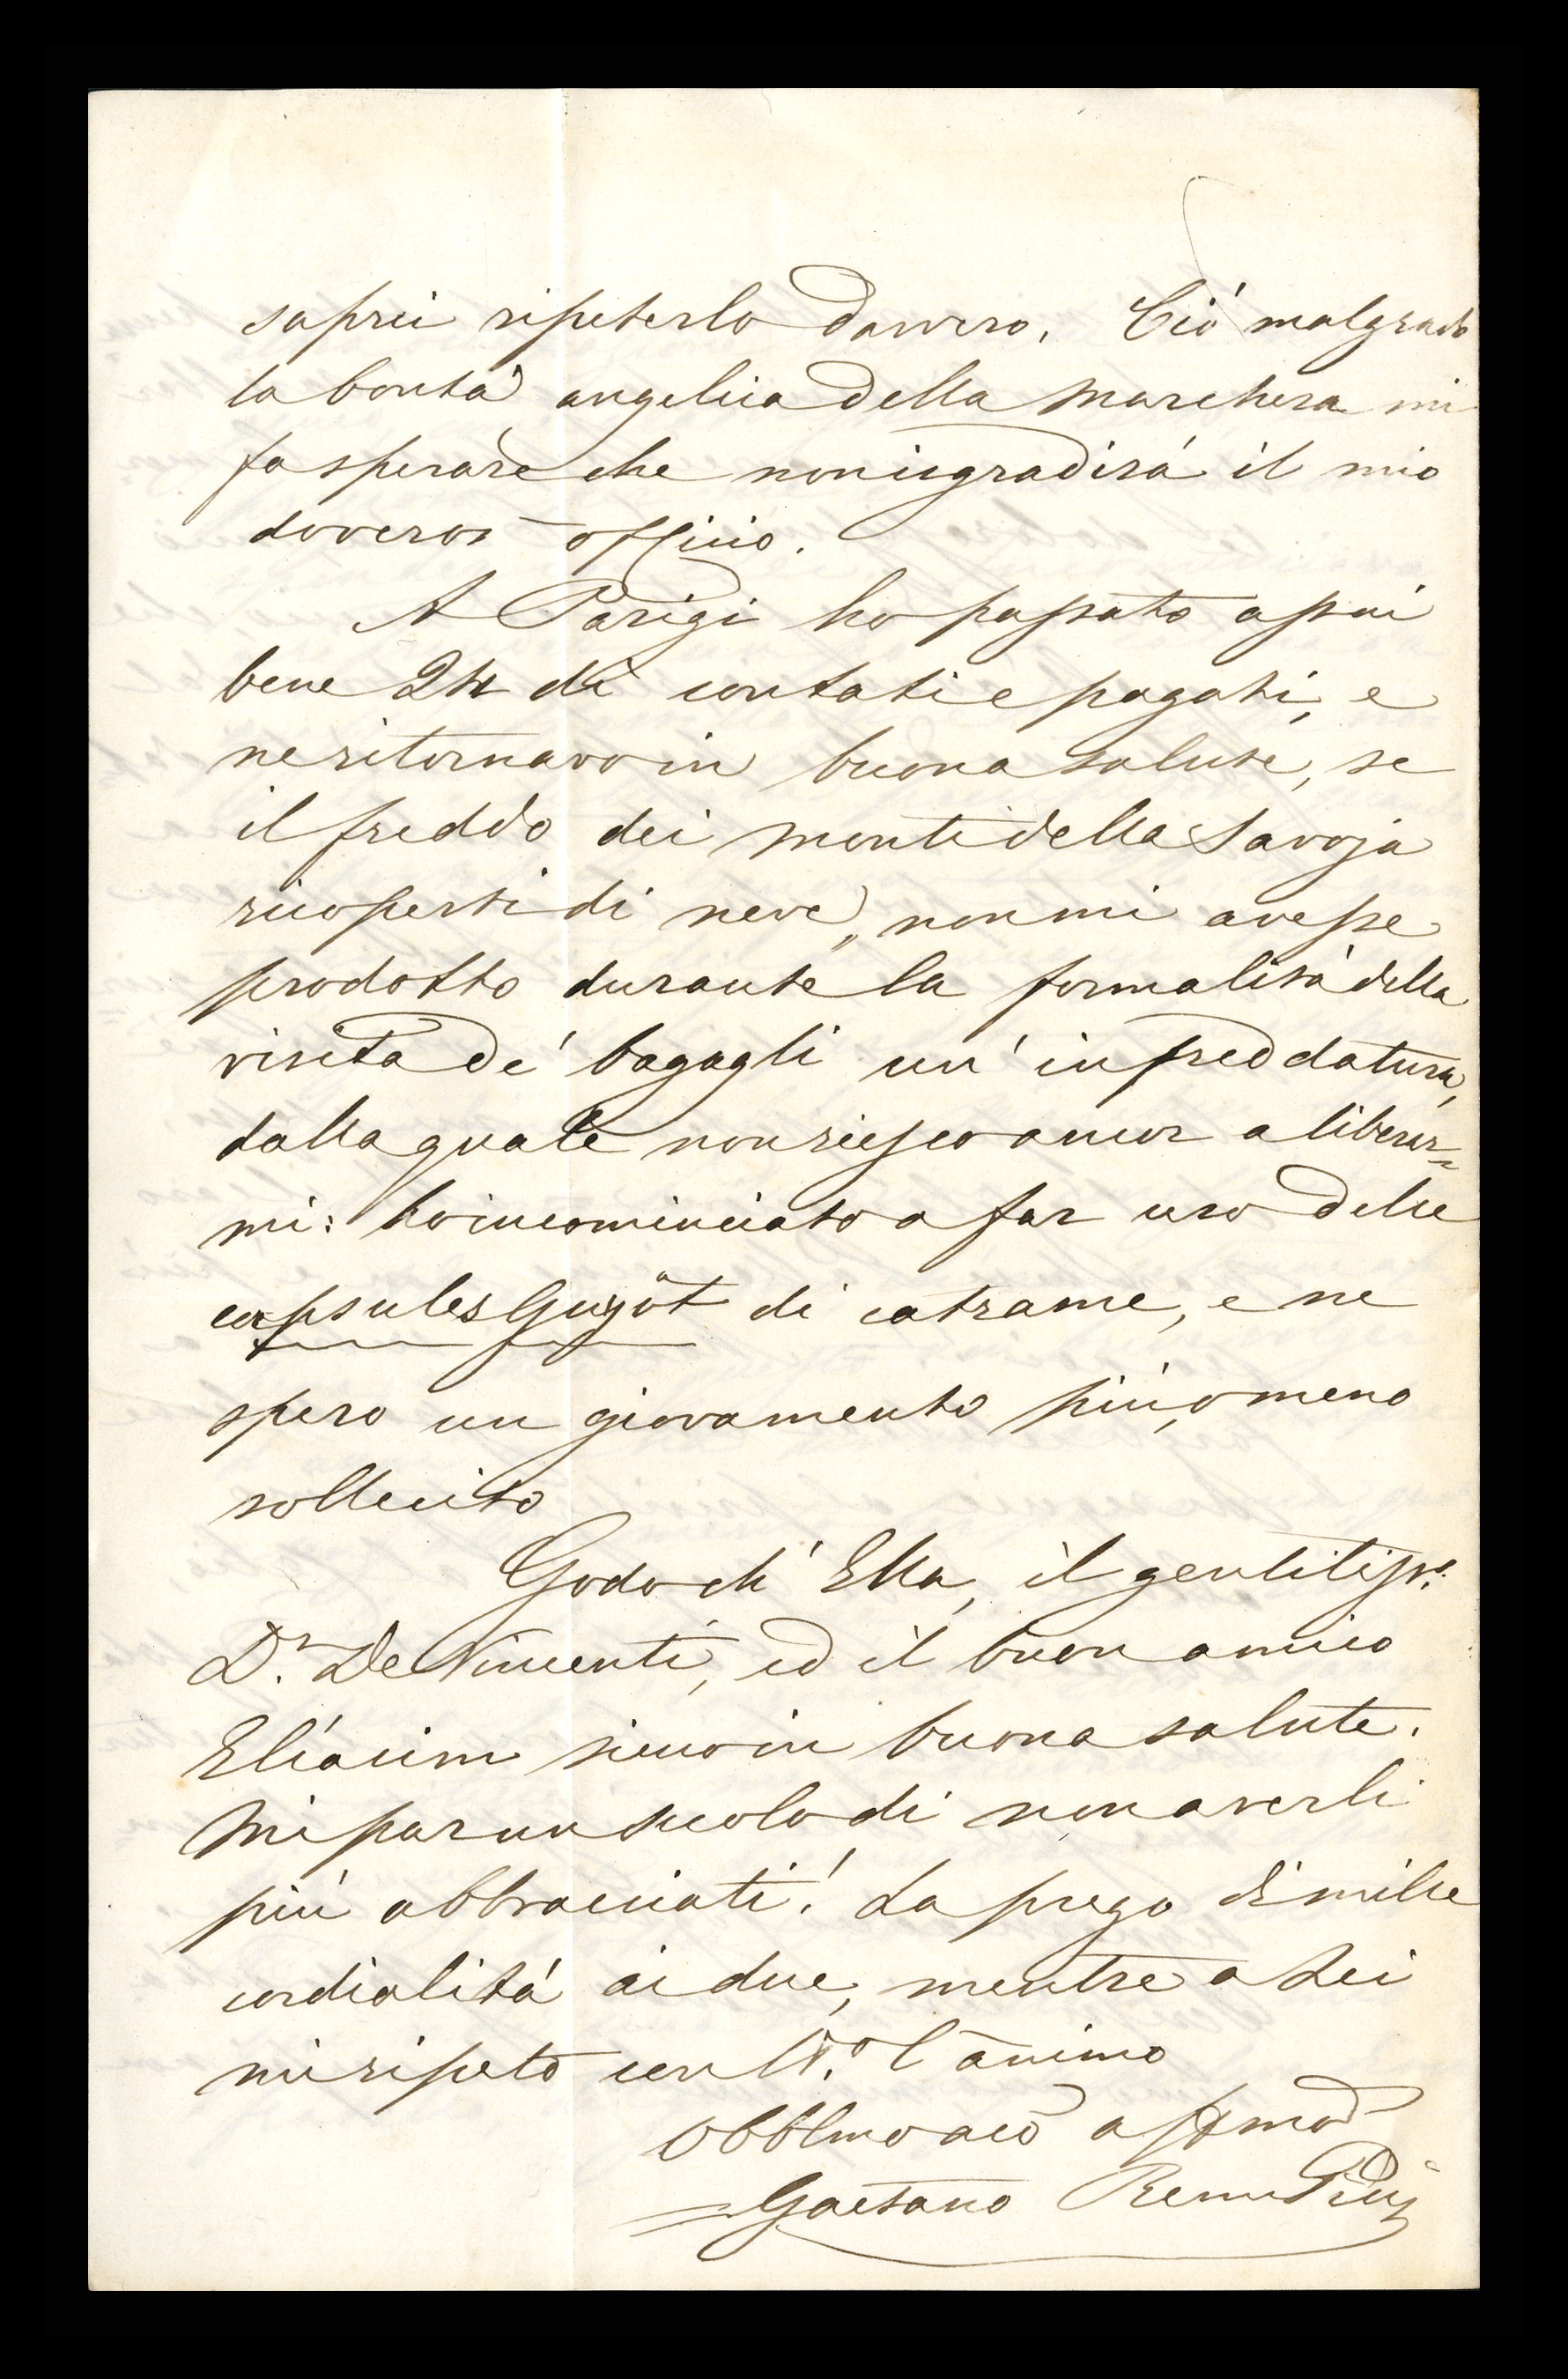 saprei ripeterlo davvero. Ció malgrado
la bontá angelica della Marchesa mi
fa sperare che non isgradirá il mio
doveroso officio.
A Parigi ho passato assai
bene 24 dí contati e pagati, e
ne ritornavo in buona salute, se
il freddo dei monti della Savoja
ricoperti di neve, non mi avesse
prodotto durante la formalitá della
visita de' bagagli un' infreddatura,
dalla quale non riesco ancor a liberar=
mi: ho incominciato a far uso delle
capsules Guyôt di catrame, e ne
spero un giovamento piú, o meno
sollecito
Godo ch' Ella, il gentiliss.º
D.r De Vincenti, ed il buon amico
Elíacim sieno in buona salute.
Mi par un secolo di non averli
piú abbracciati! La prego di mille
cordialitá ai due, mentre a Lei
mi ripeto con tt.º l'animo
Obblmo aco affmo
Gaetano